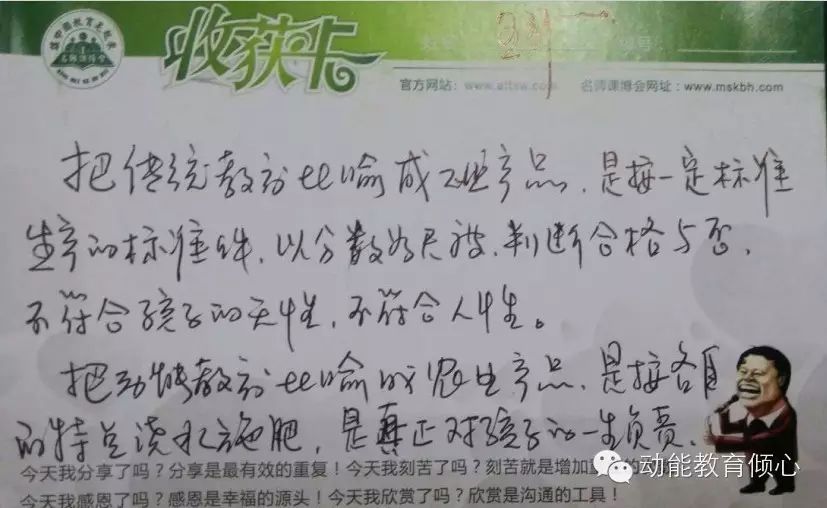 收获卡
官方网站：www.attsw.com 名师课博会网址：www.mskbh.com
把传统教育比喻成工业产品，是按一定标准
生产的标准件，以分数为尺度，判断合格与否，
不符合孩子的天性，不符合人性。
把动能教育比喻成农业产品，是按各自
的特点浇水施肥，是真正对孩子的一生负责。
今天我分享了吗？分享是最有效的重复！今天我刻苦了吗？刻苦就是增加
动能教育倾心
今天我感恩了吗？感恩是幸福的源头！今天我欣赏了吗？欣赏是沟通的工具！